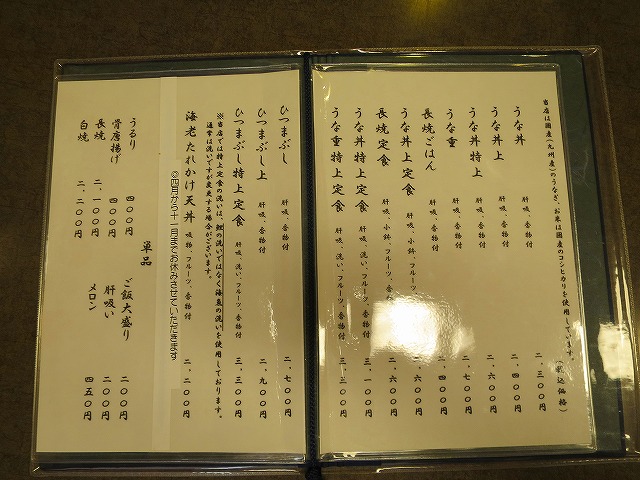 当店は国産(九州産)のうなぎ、お米は国産のコシヒカリを使用しています。 (税込価格)
うな丼 肝吸、香物付 二、三〇〇円
うな丼上 肝吸、香物付 二、四〇〇円
うな丼特上 肝吸、香物付 二、六〇〇円
うな重 肝吸、香物付 二、七〇〇円
長焼ごはん 肝吸、香物付 二、四〇〇円
うな丼上定食 肝吸、小鉢、フルーツ、香物付 二、六〇〇円
長焼定食 肝吸、小鉢、フルーツ、香物付 二、六〇〇円
うな丼特上定食 肝吸、洗い、フルーツ、香物付 三、一〇〇円
うな重特上定食 肝吸、洗い、フルーツ、香物付 三、三〇〇円
ひつまぶし 肝吸、香物付 二、七〇〇円
ひつまぶし上 肝吸、香物付 二、九〇〇円
ひつまぶし特上定食 肝吸、洗い、フルーツ、香物付 三、三〇〇円
※当店では特上定食の洗いは、鯉の洗いではなく海魚の洗いを使用しております。
通常は洗いですが変更する場合がございます。
海老たれかけ天丼 吸物、フルーツ、香物付 二、二〇〇円
◎四月から十一月までお休みさせていただきます
単品
うるり 四〇〇円
骨唐揚げ 四〇〇円
長焼 二、一〇〇円
白焼 二、二〇〇円
ご飯大盛り 二〇〇円
肝吸い 二〇〇円
メロン 四五〇円